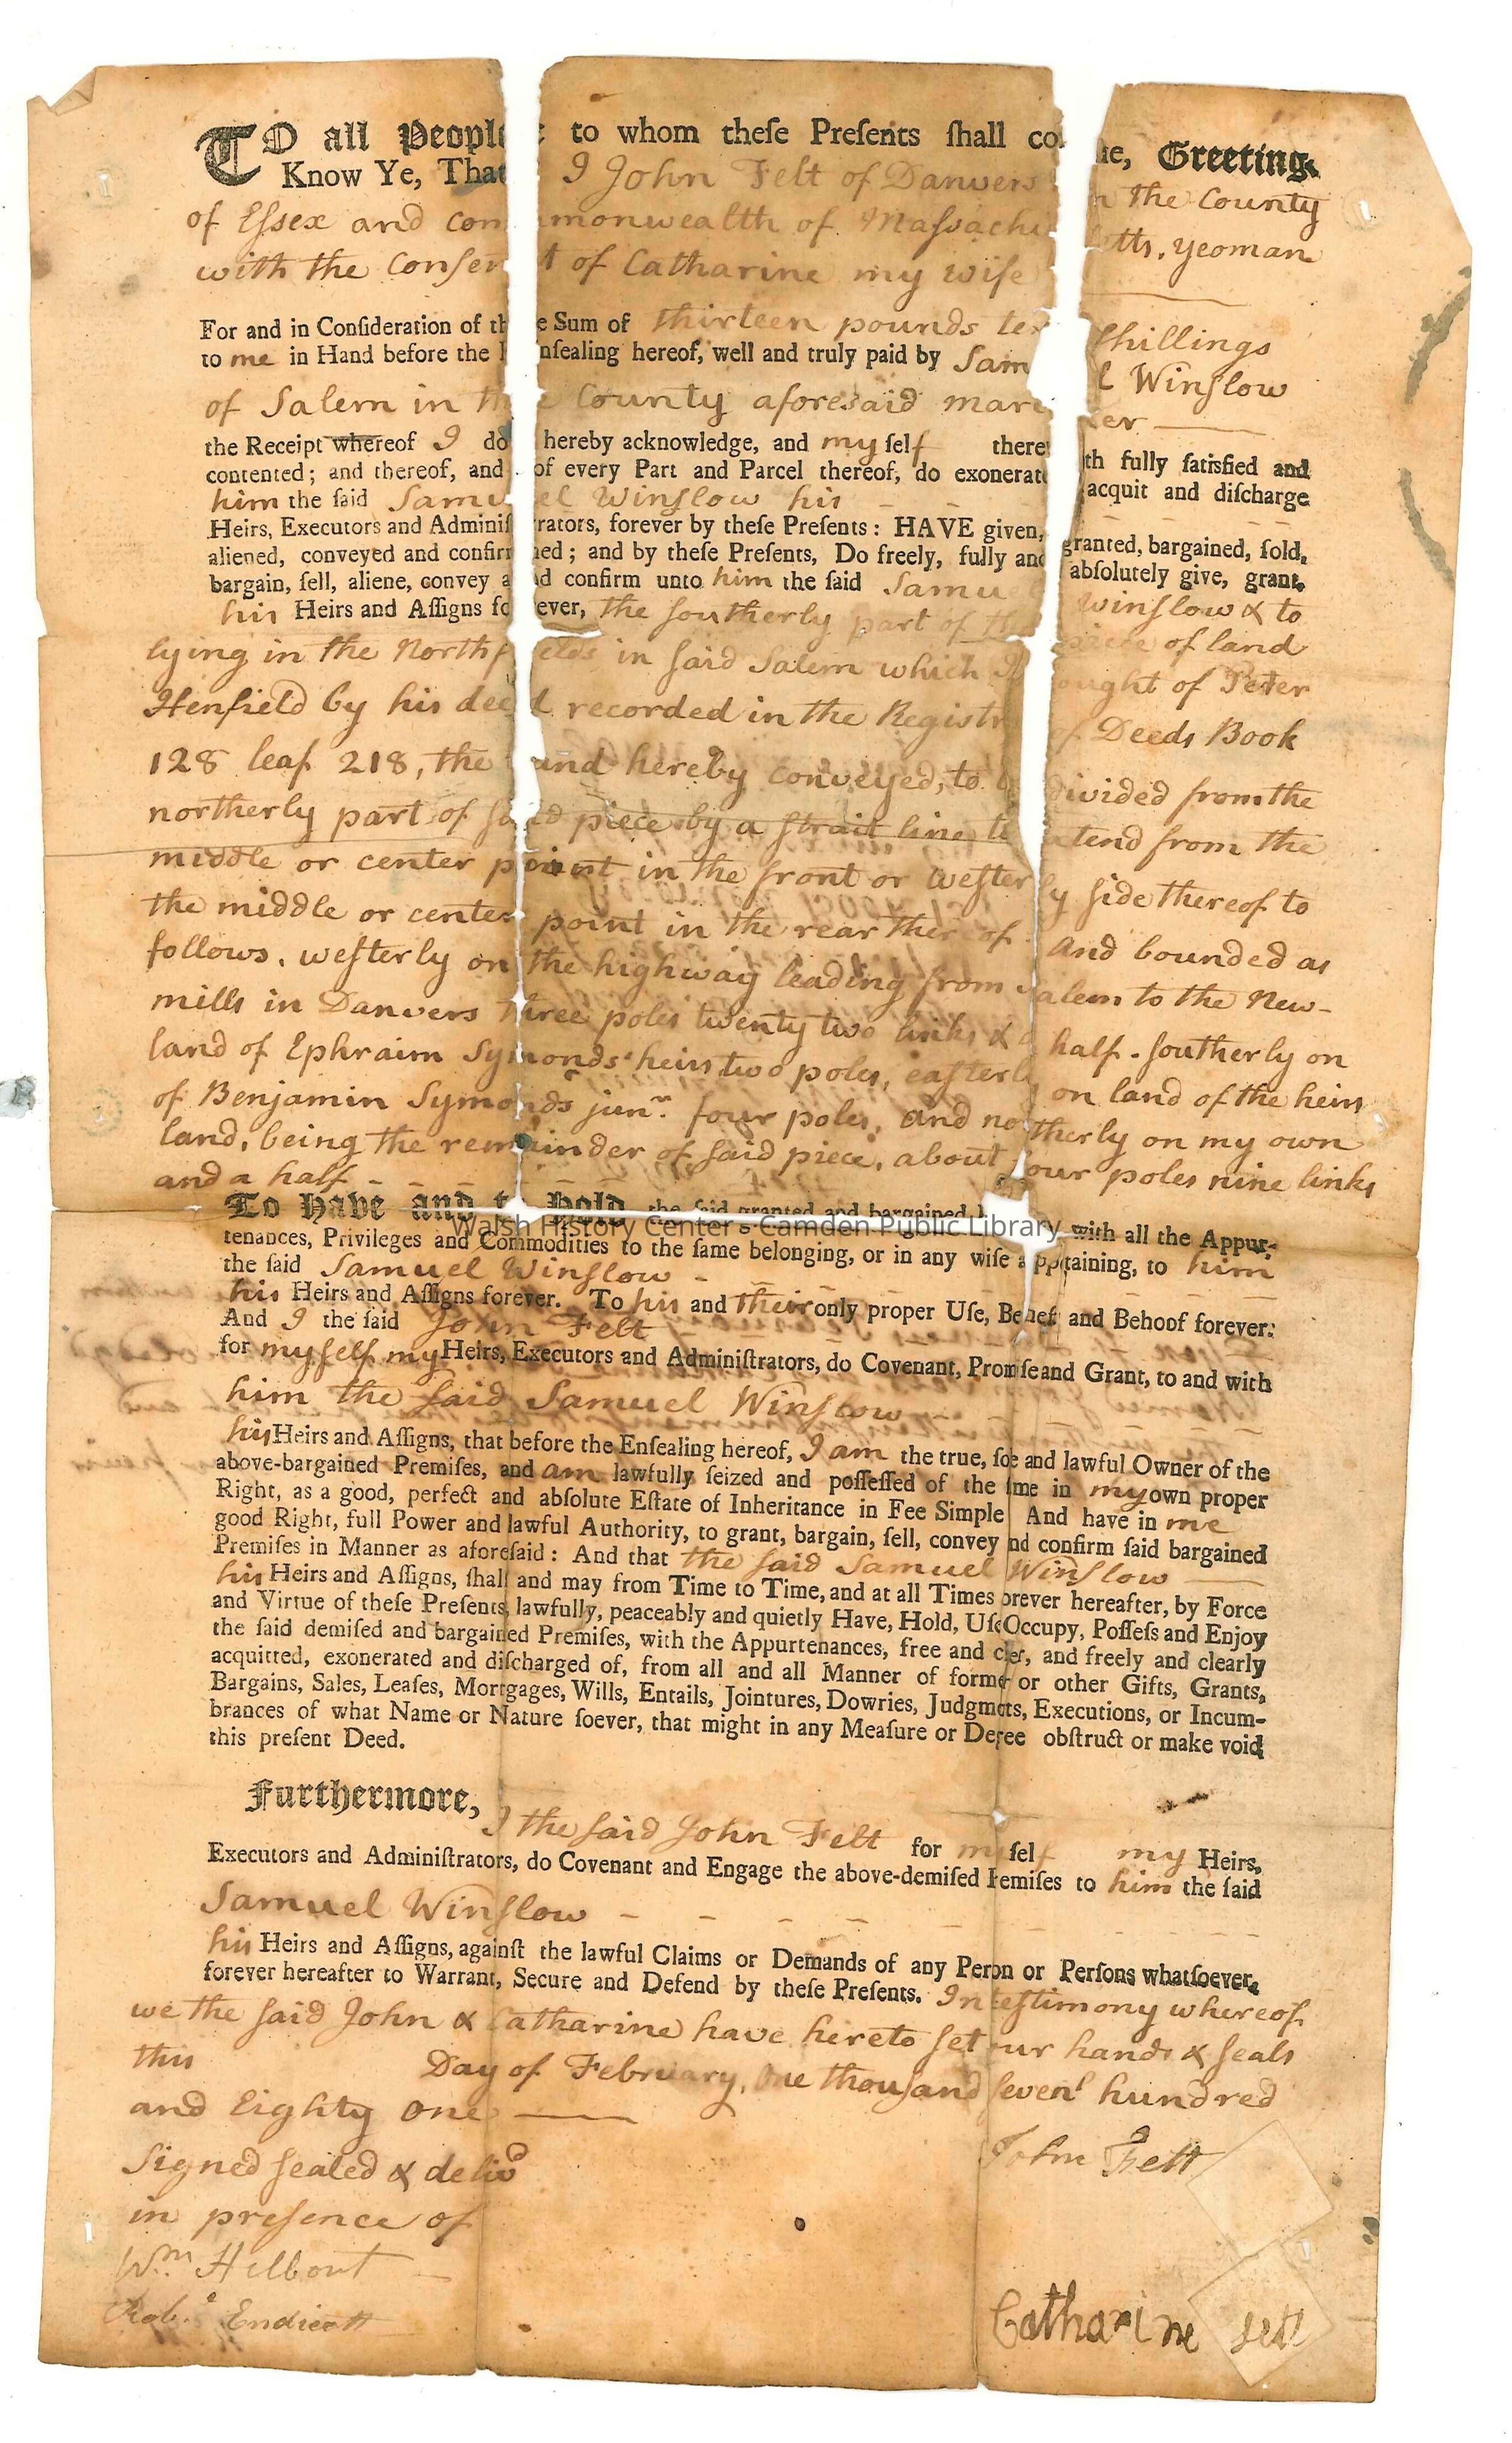 TO all People to whom theſe Preſents ſhall come, Greeting.
Know Ye, That I John Felt of Danvers in the County
of Eſsex and commonwealth of Maſsachuſetts, yeoman
with the Conſent of Catharine my wife
For and in Conſideration of the Sum of thirteen pounds ten ſhillings
to me in Hand before the Enſealing hereof, well and truly paid by Samuel Winſlow
of Salem in the County aforesaid mariner
the Receipt whereof I do hereby acknowledge, and my ſelf therewith fully ſatisfied and
contented; and thereof, and of every Part and Parcel thereof, do exonerate acquit and diſcharge
him the ſaid Samuel Winſlow his
Heirs, Executors and Adminiſtrators, forever by theſe Preſents: HAVE given, granted, bargained, ſold,
aliened, conveyed and confirmed; and by theſe Preſents, Do freely, fully and abſolutely give, grant,
bargain, ſell, aliene, convey and confirm unto him the ſaid Samuel Winſlow & to
his Heirs and Aſſigns forever, the ſoutherly part of the piece of land
lying in the Northfields in ſaid Salem which I bought of Peter
Henfield by his deed recorded in the Registry of Deeds Book
128 leaf 218, the land hereby conveyed, to be divided from the
northerly part of ſaid piece by a ſtrait line to extend from the
middle or center point in the front or weſterly ſide thereof to
the middle or center point in the rear thereof. And bounded as
follows. weſterly on the highway leading from Salem to the New-
mills in Danvers three poles twenty two links & a half. ſoutherly on
land of Ephraim Symonds' heirs two poles, eaſterly on land of the heirs
of Benjamin Symonds junr. four poles, and northerly on my own
land, being the remainder of ſaid piece, about four poles nine links
and a half
To Have and to Hold the ſaid granted and bargained with all the Appur-
Walsh History Center - Camden Public Library
tenances, Privileges and Commodities to the ſame belonging, or in any wiſe appertaining, to him
the ſaid Samuel Winſlow
his Heirs and Aſſigns forever. To his and their only proper Uſe, Benefit and Behoof forever:
And I the ſaid John Felt
for myſelf my Heirs, Executors and Adminiſtrators, do Covenant, Promiſe and Grant, to and with
him the ſaid Samuel Winſlow
his Heirs and Aſſigns, that before the Enſealing hereof, I am the true, ſole and lawful Owner of the
above-bargained Premiſes, and am lawfully ſeized and poſſeſſed of the ſame in my own proper
Right, as a good, perfect and abſolute Eſtate of Inheritance in Fee Simple And have in me
good Right, full Power and lawful Authority, to grant, bargain, ſell, convey and confirm ſaid bargained
Premiſes in Manner as aforeſaid: And that the ſaid Samuel Winſlow
his Heirs and Aſſigns, ſhall and may from Time to Time, and at all Times forever hereafter, by Force
and Virtue of theſe Preſents, lawfully, peaceably and quietly Have, Hold, Uſe Occupy, Poſſeſs and Enjoy
the ſaid demiſed and bargained Premiſes, with the Appurtenances, free and clear, and freely and clearly
acquitted, exonerated and diſcharged of, from all and all Manner of former or other Gifts, Grants,
Bargains, Sales, Leaſes, Mortgages, Wills, Entails, Jointures, Dowries, Judgments, Executions, or Incum-
brances of what Name or Nature ſoever, that might in any Meaſure or Degree obſtruct or make void
this preſent Deed.
Furthermore, I the ſaid John Felt for my ſelf my Heirs,
Executors and Adminiſtrators, do Covenant and Engage the above-demiſed Premiſes to him the ſaid
Samuel Winſlow
his Heirs and Aſſigns, againſt the lawful Claims or Demands of any Perſon or Perſons whatſoever,
forever hereafter to Warrant, Secure and Defend by theſe Preſents. In teſtimony whereof
we the ſaid John & Catharine have hereto ſet our hands & ſeals
this Day of February, One thouſand ſeven hundred
and Eighty one
Signed ſealed & delivd
in preſence of
John Felt
Wm.
Robt. Endicott
Catharine felt